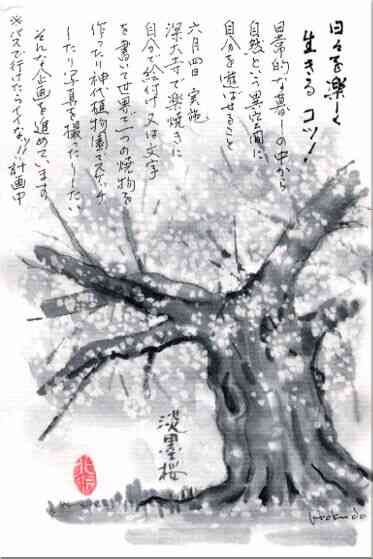 日々を楽しく
生きるコツ!
日常的な暮しの中から
自然という異空間に
自分を遊ばせること
六月四日 実施
深大寺で楽焼きに
自分で絵付け又は文字
を書いて世界で一つの焼物を
作ったり神代植物園でスケッチ
したり写真を撮ったりーたい
そんな企画を進めています
※バスで行けたらイイなー!!計画中
淡墨桜